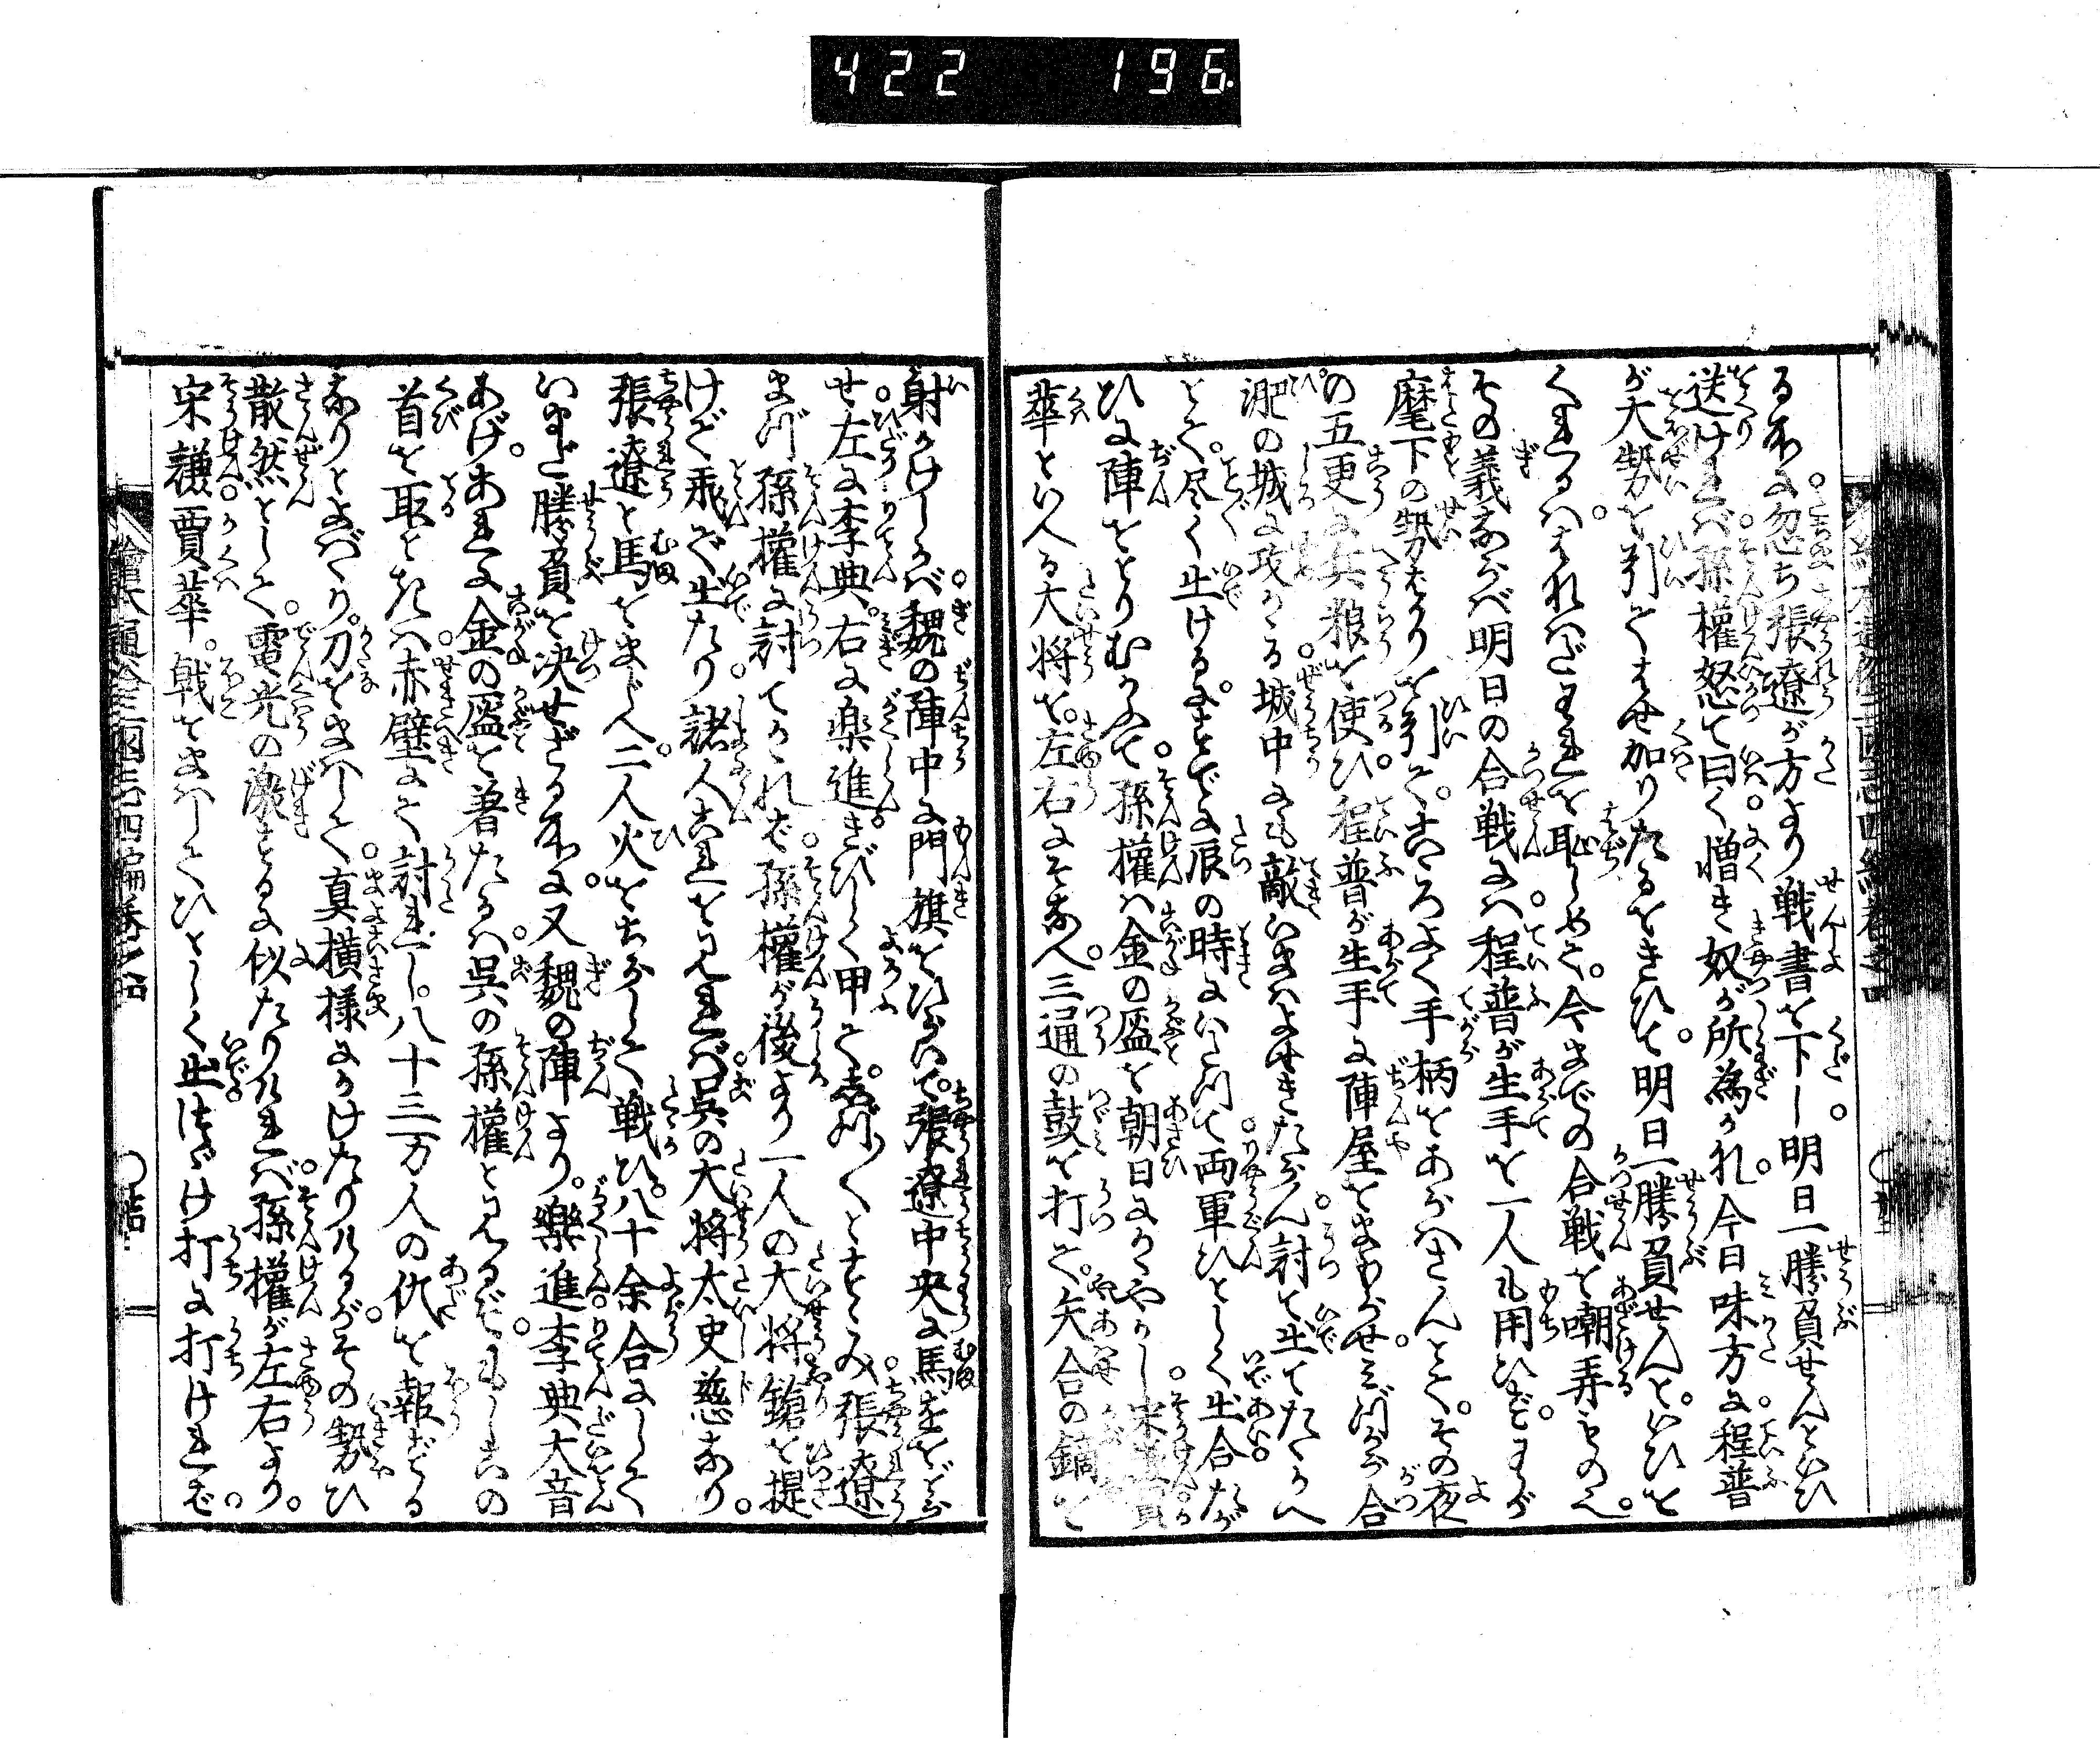 422 196
る所に忽ち張遼が方より戦書を下し明日一勝負せんといひ
送けれバ孫権怒て曰く憎き奴が所為かな今日味方に程普
が大勢を引てはせ加りたるをきひて明日一勝負せんといひを
くれるハそれハだまれを恥しめて今までの合戦を嘲弄ものへ
その義ならべ明日の合戦にハ程普が生手を一人も用ひずわが
麾下の勢ばかりを引て、こころよく手柄をあらハさんとてその夜
の五更に兵粮を使ひ程普が生手に陣屋をまもらせミづから合
淝の城に攻かゝる城中にも敵いまハよせきたらん討て出てたゝかへ
とて尽く出けるほどに辰の時にいたつて両軍ひとしく出合たが
ひに陣をとりむかへて孫権ハ金の盔を朝日にかゝやかし宋謙賈
華といへる大将を左右にそなへ三通の鼓を打て矢合の鏑を
射かけしかバ魏の陣中に門旗をひらいて張遼中央に馬をとゞめ
せ左に李典右に楽進きびしく甲て しづ〳〵とすゝみ張遼
まづ孫権に討てかゝれバ孫権が後より一人の大将鎗を提
けて飛で出たり諸人これをみれバ呉の大将太史慈なり
張遼と馬をまじへ二人火をちらして戦ひ八十余合にして
いまだ勝負を决せざる所に又魏の陣より樂進李典大音
あげあれに金の盔を着たるハ呉の孫権とみるぞもしこの
首を取ときハ赤壁にて討れし八十三万人の仇を報ずる
なりとよばゝり刀をまハして真横様にかけたりけるがその勢ひ
散然として電光の激するに似たりけれバ孫権が左右より
宋謙賈華戟をまハしてひとしく出たすけ打に打けれバ